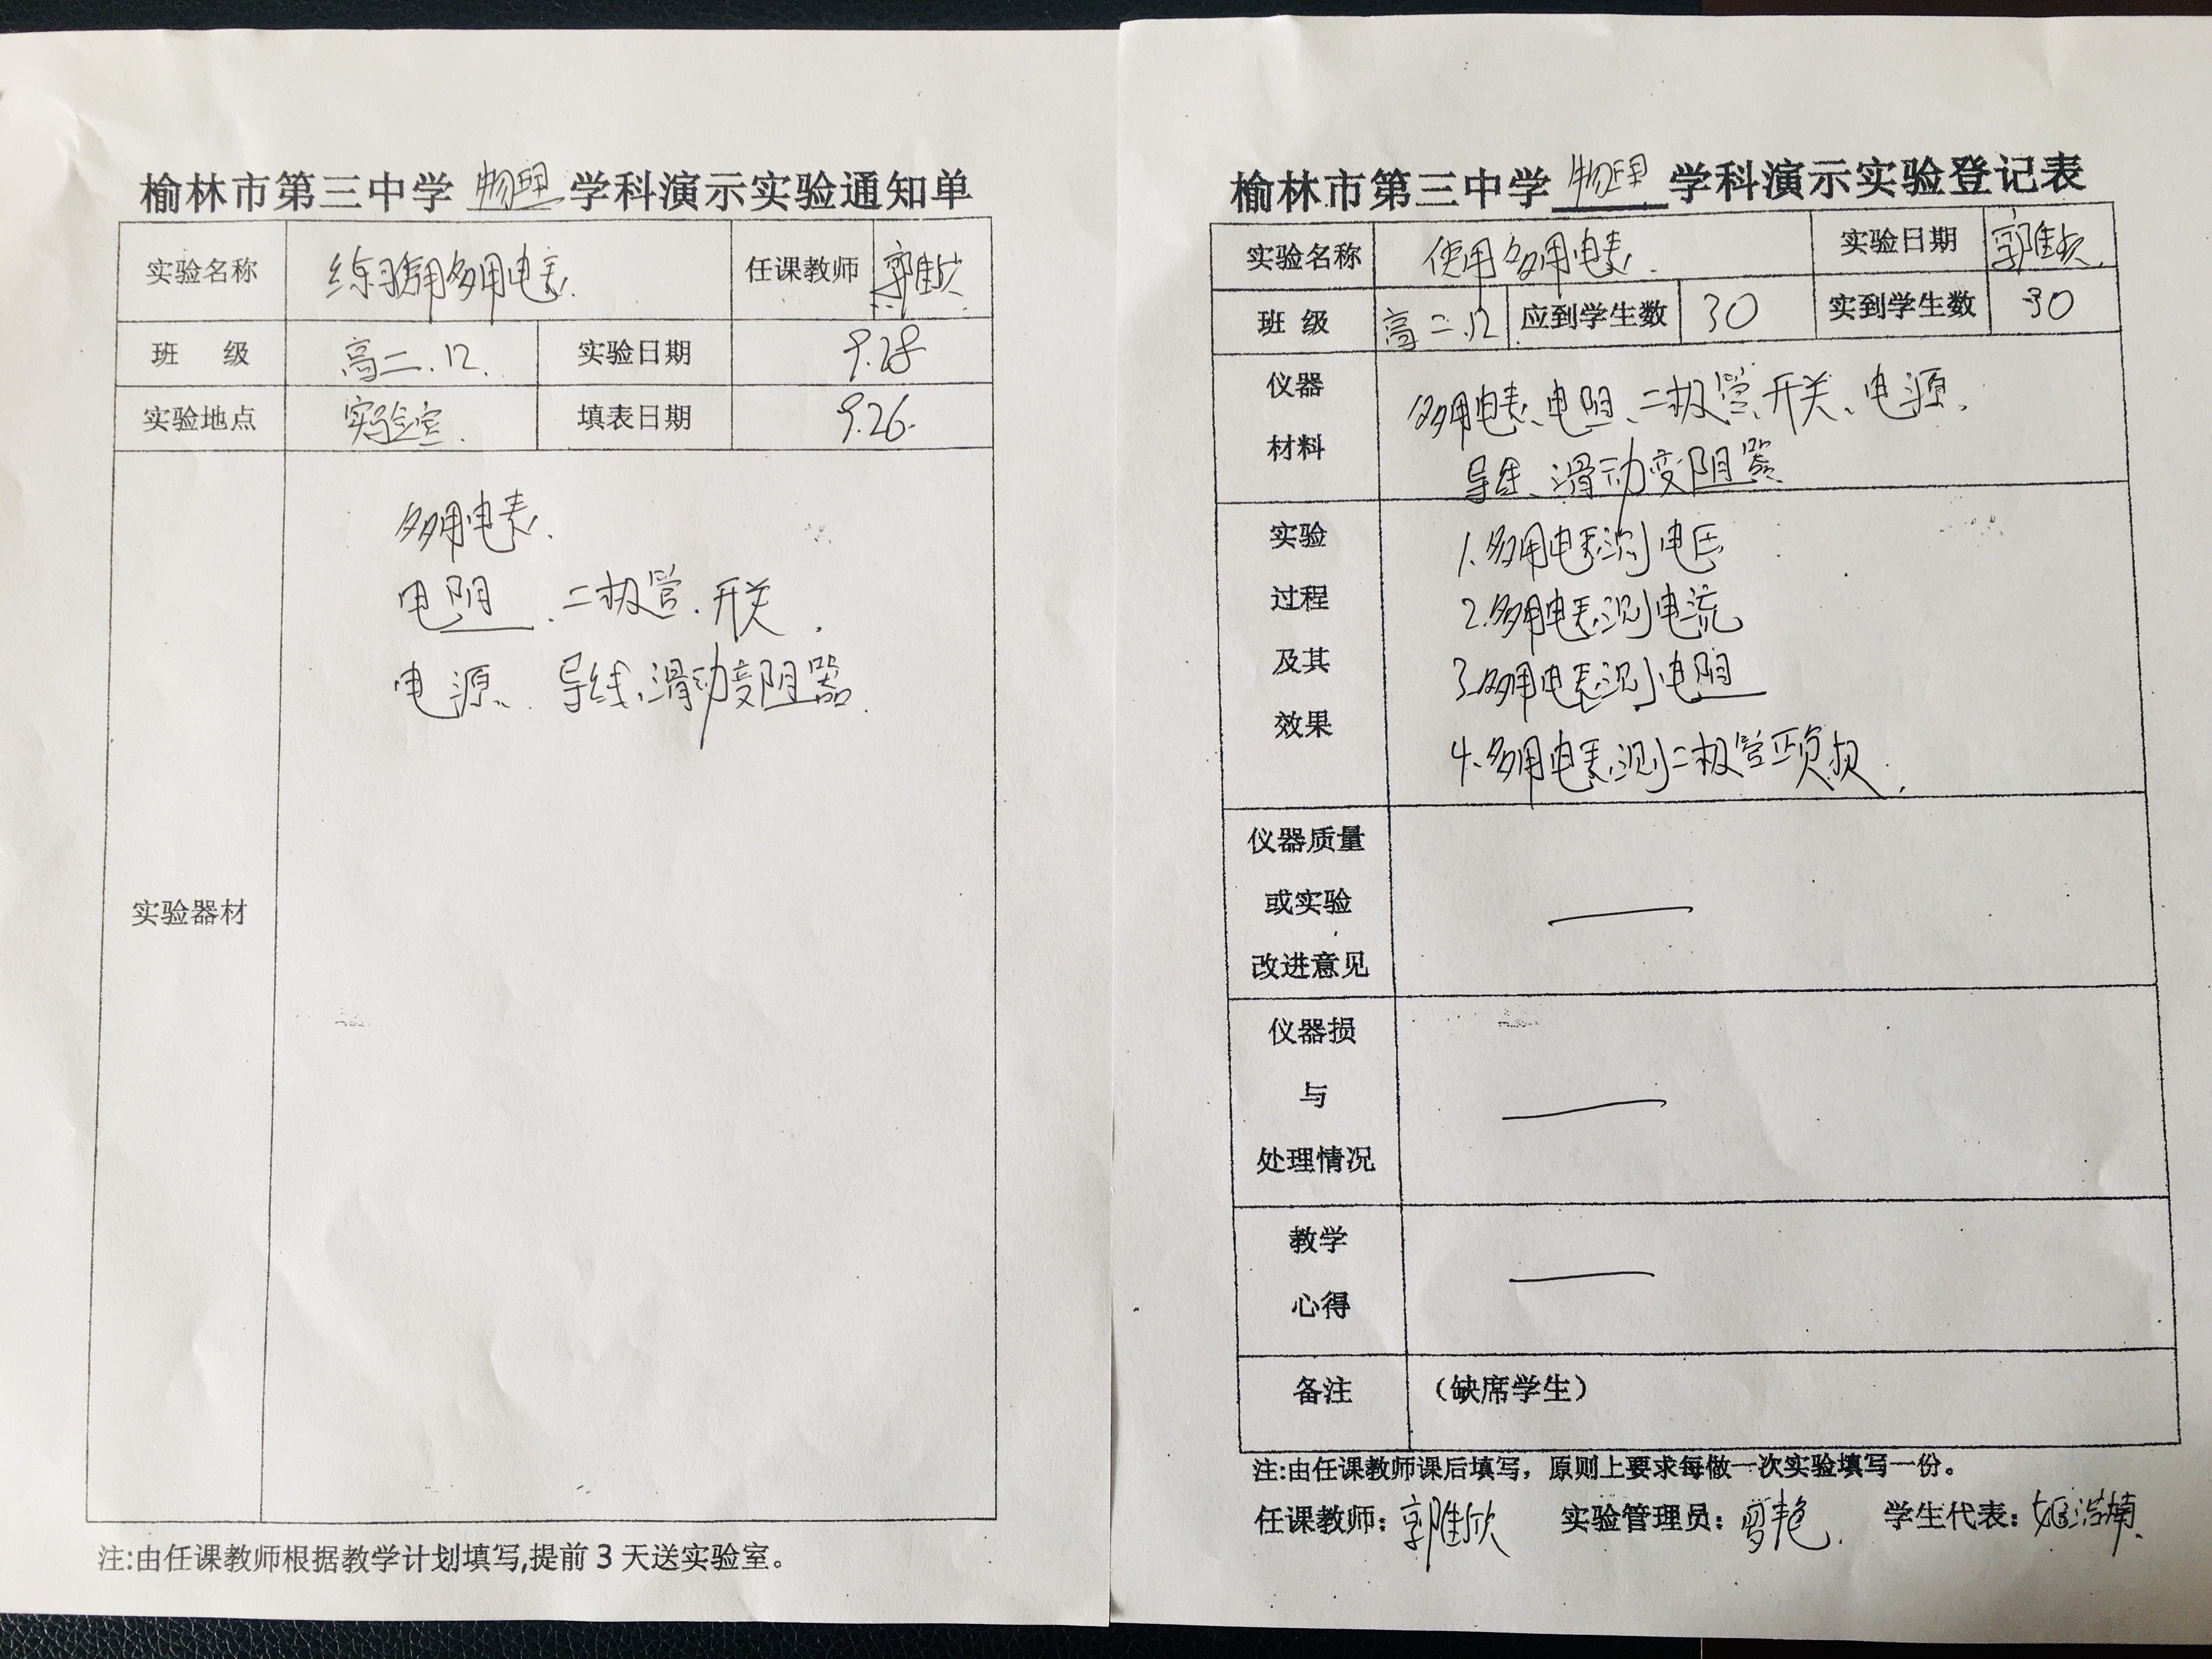 榆林市第三中学 物理 学科演示实验通知单
实验名称 练习使用多用电表. 任课教师 郭佳欣
班 级 高二.12. 实验日期 9.28
实验地点 实验室. 填表日期 9.26.
实验器材
多用电表.
电阻.二极管.开关.
电源、导线、滑动变阻器.
注:由任课教师根据教学计划填写,提前3天送实验室。
榆林市第三中学 物理 学科演示实验登记表
实验名称 使用多用电表. 实验日期 郭佳欣.
班 级 高二.12. 应到学生数 30 实到学生数 30
仪器
材料
多用电表、电阻、二极管、开关、电源、
导线、滑动变阻器
实验
过程
及其
效果
1.多用电表测电压
2.多用电表测电流
3.多用电表测电阻
4.多用电表测二极管正负极.
仪器质量
或实验
改进意见
仪器损
与
处理情况
教学
心得
备注 （缺席学生）
注:由任课教师课后填写，原则上要求每做一次实验填写一份。
任课教师：郭佳欣 实验管理员：曹艳. 学生代表：姬浩楠.